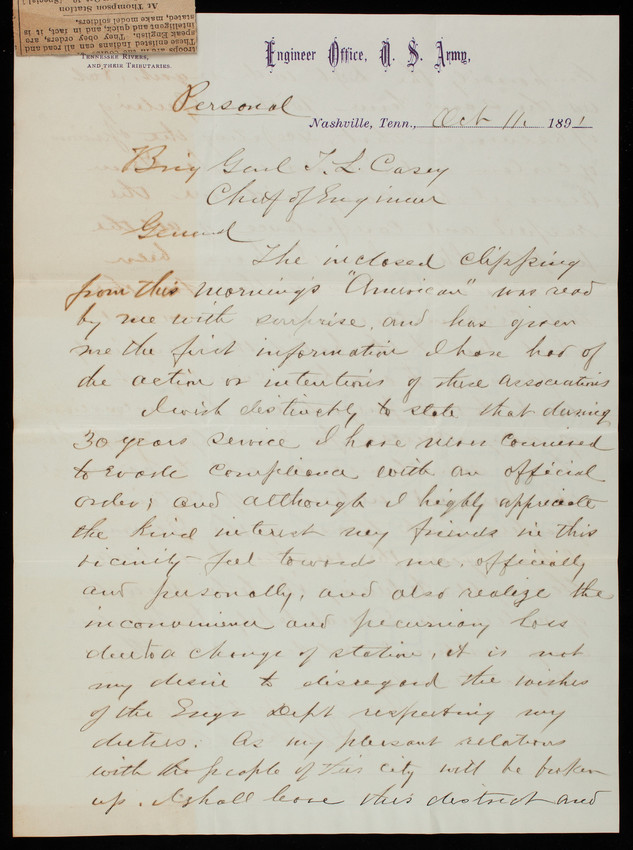 At Thompson Station
stated, make model soldiers.
intelligent and quick, and in fact, it is
speak English. They obey orders, are
These enlisted Indians can all read and
troops
Tennessee Rivers,
and their Tributaries.
Engineer Office, U. S. Army,
Personal
Nashville, Tenn., Oct 11, 1891
Brig Genl T. L. Casey
Chief of Engineer
General
The inclosed clipping
from this morning's "American" was read
by me with surprise, and has given
me the first information I have had of
the action or intentions of these associations
I wish distinctly to state that during
30 years service I have never connived
to evade compliance with an official
order; and although I highly appreciate
the kind interest my friends in this
vicinity feel towards me, officially
and personally, and also realize the
inconvenience and pecuniary loss
due to a change of station, it is not
my desire to disregard the wishes
of the Engr Dept respecting my
duties. As my pleasant relations
with the people of this city will be broken
up, I shall leave this district and